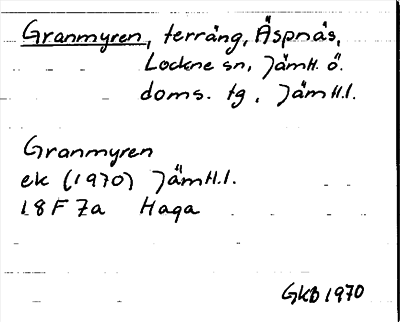 Granmyren, terräng, Äspnäs,
Lockne sn, Jämtl. ö.
doms. tg, Jämtl.l.
Granmyren
ek (1970) Jämtl.l.
18F 7a Haga
GKB 1970